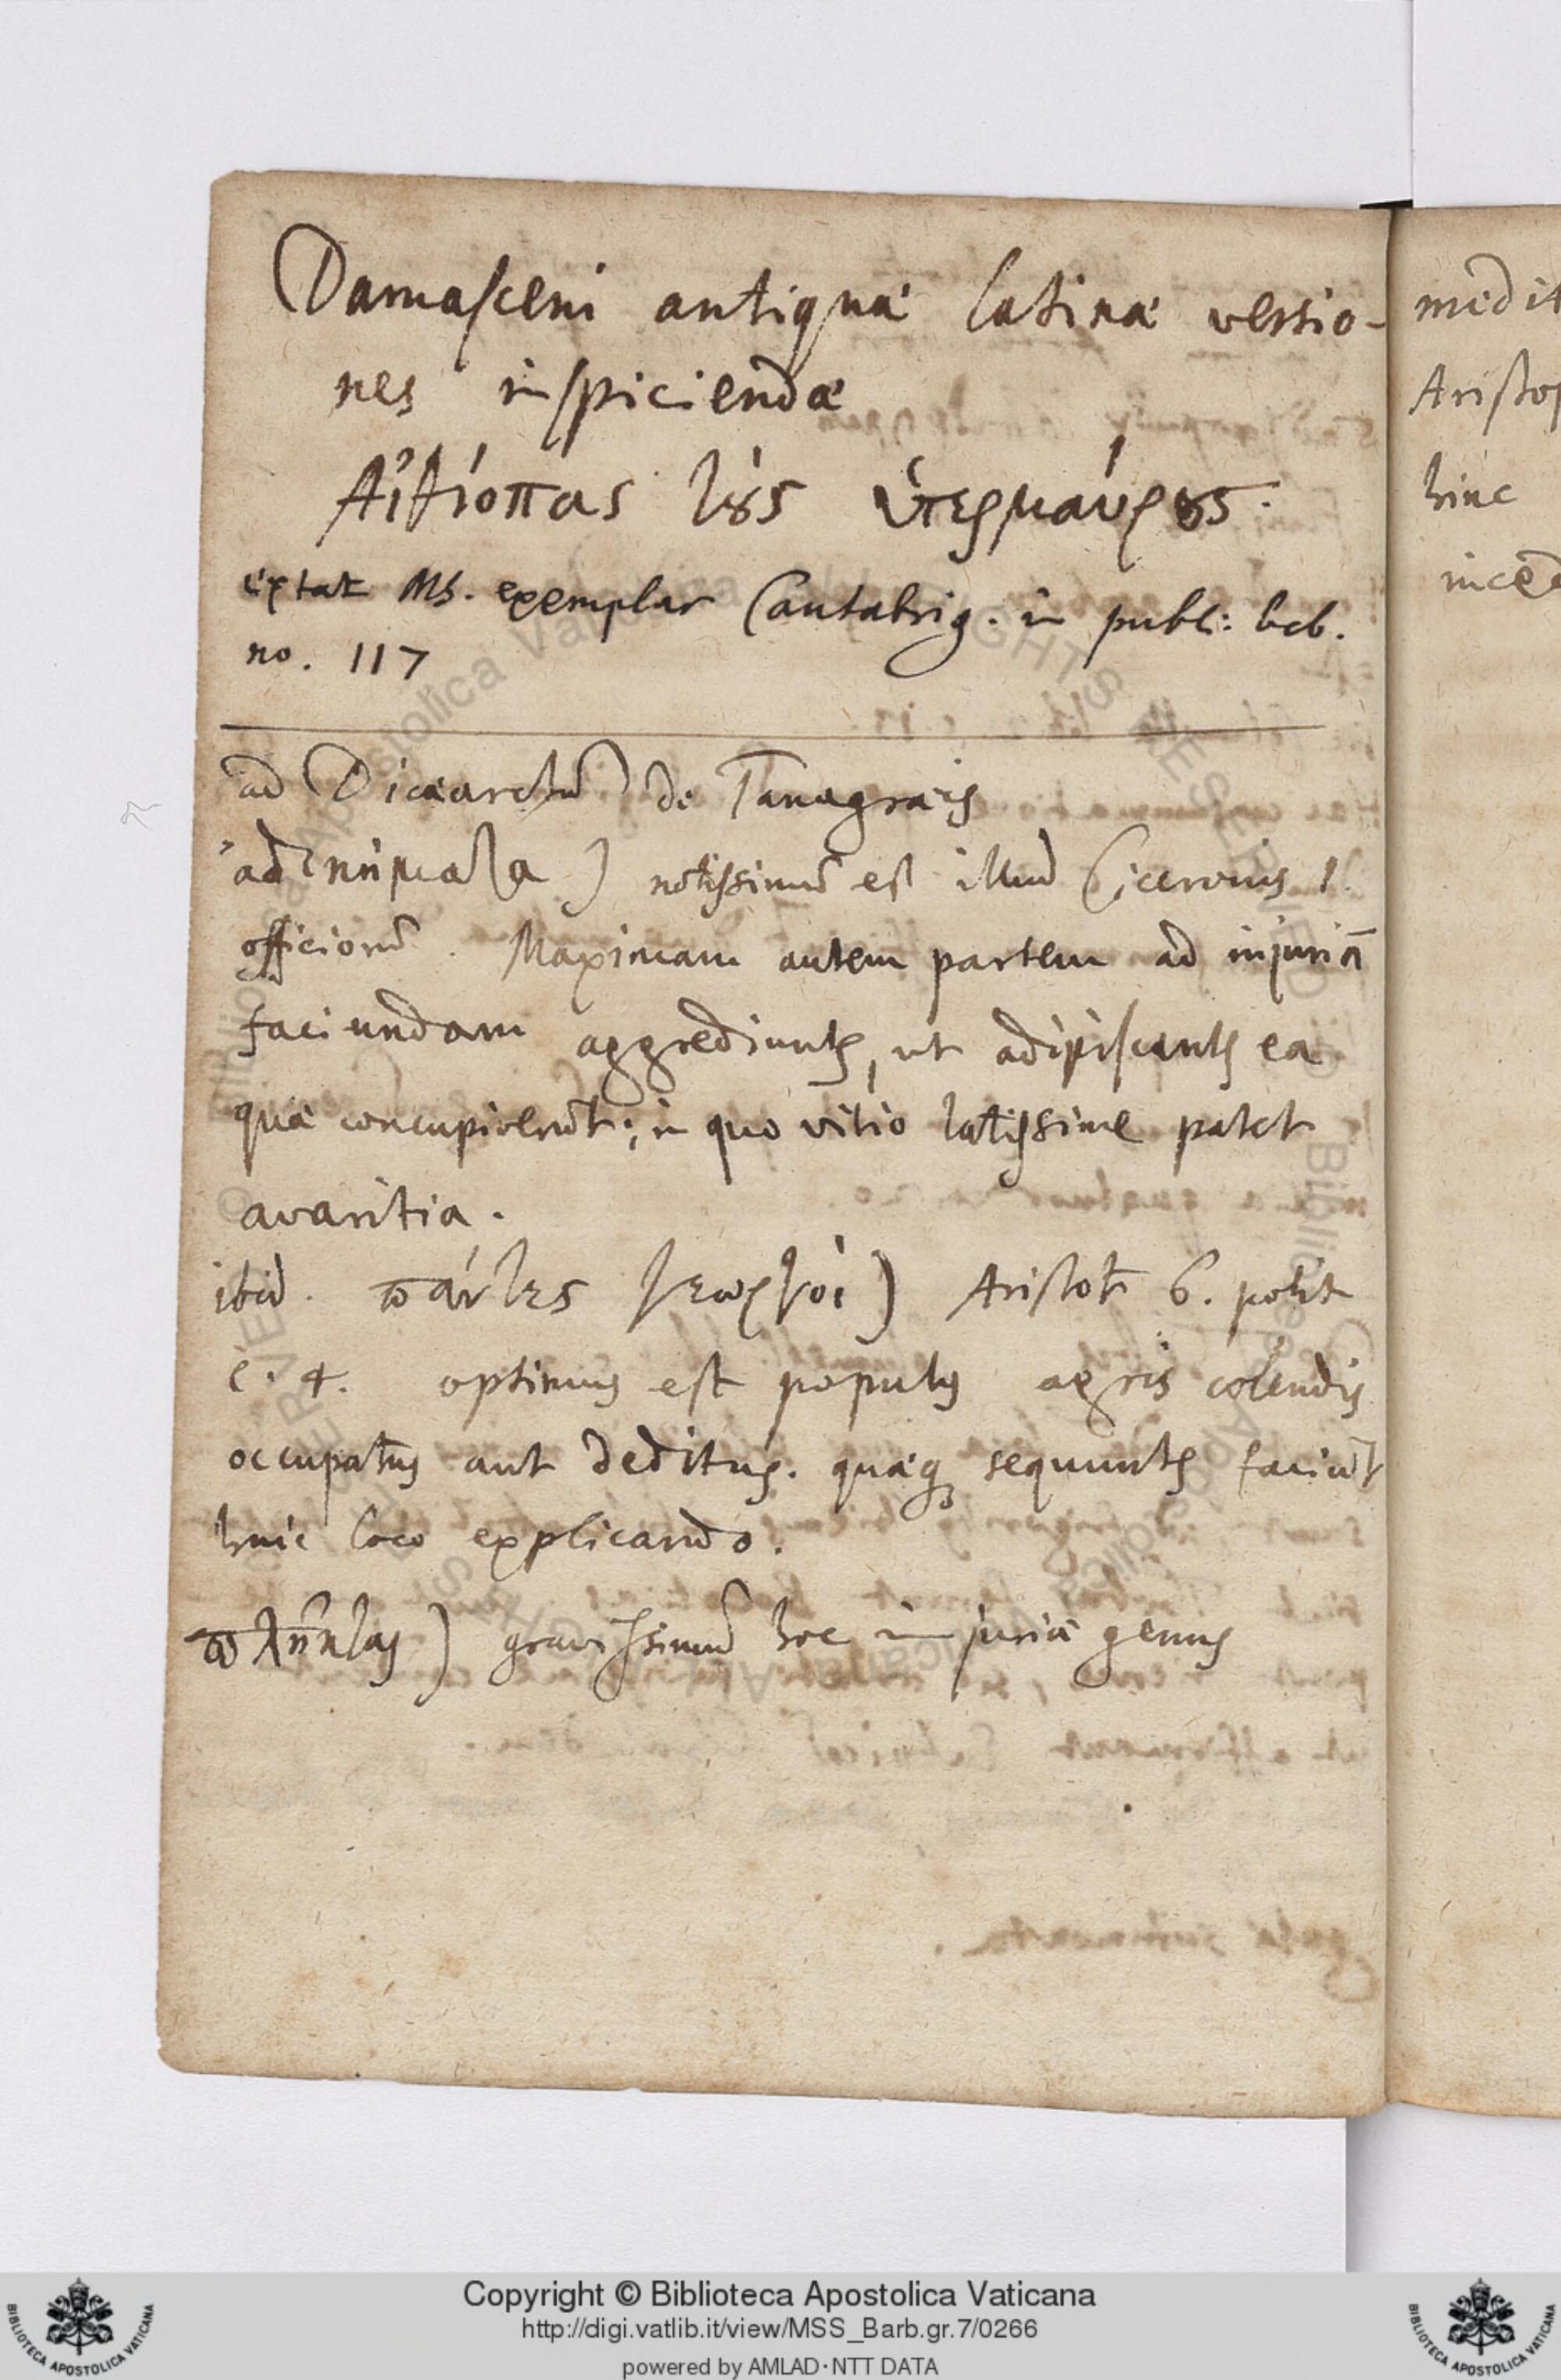 Damasceni antiquæ latinæ versio-
nes inspiciendæ
Αἰθίοπας τὰς ὑπερμαύρους.
extat Ms. exemplar Cantabrig. in publ: bib.
no. 117
ad Dicæarchũ de Tanagræis
ad κτήματα) notissimũ est illud Ciceronis 1.
officiorũ. Maximam autem partem ad injuriã
faciundam aggrediuntr, ut adipiscantr ea
quæ concupiverũt; in quo vitio latissime patet
avaritia.
ibid. πάντες γεωργοὶ) Aristot 6. polit
c. 4. optimus est populus agris colendis
occupatus aut deditus. quæq sequuntr faciũt
huic loco explicando.
πλῆκται) gravissimũ hoc injuriæ genus
medit
Aristop
hinc
Copyright © Biblioteca Apostolica Vaticana
http://digi.vatlib.it/view/MSS_Barb.gr.7/0266
powered by AMLAD·NTT DATA
BIBLIOTECA APOSTOLICA VATICANA
BIBLIOTECA APOSTOLICA VATICANA